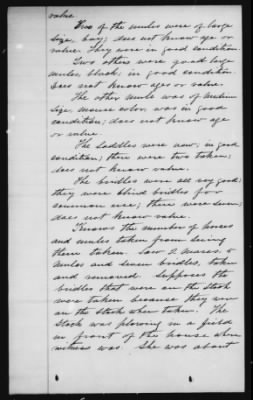 value.
Two of the mules were of large
size, bay; does not know age or
value. They were in good condition.
Two others were good large
mules, black; in good condition
does not know ages or value.
The other mule was of medium
size, mouse color; was in good
condition; does not know age
or value.
The saddles were new; in good
condition; there were two taken;
does not know value.
The bridles were all very good;
they were blind bridles for
common use; there were seven;
does not know value.
Knows the number of horses
and mules taken from seeing
them taken. Saw 2 mares, 5
mules and seven bridles, taken
and removed. Supposes the
bridles that were on the stock
were taken because they were
on the stock when taken. The
stock was plowing in a field
in front of the house where
witness was. She was about